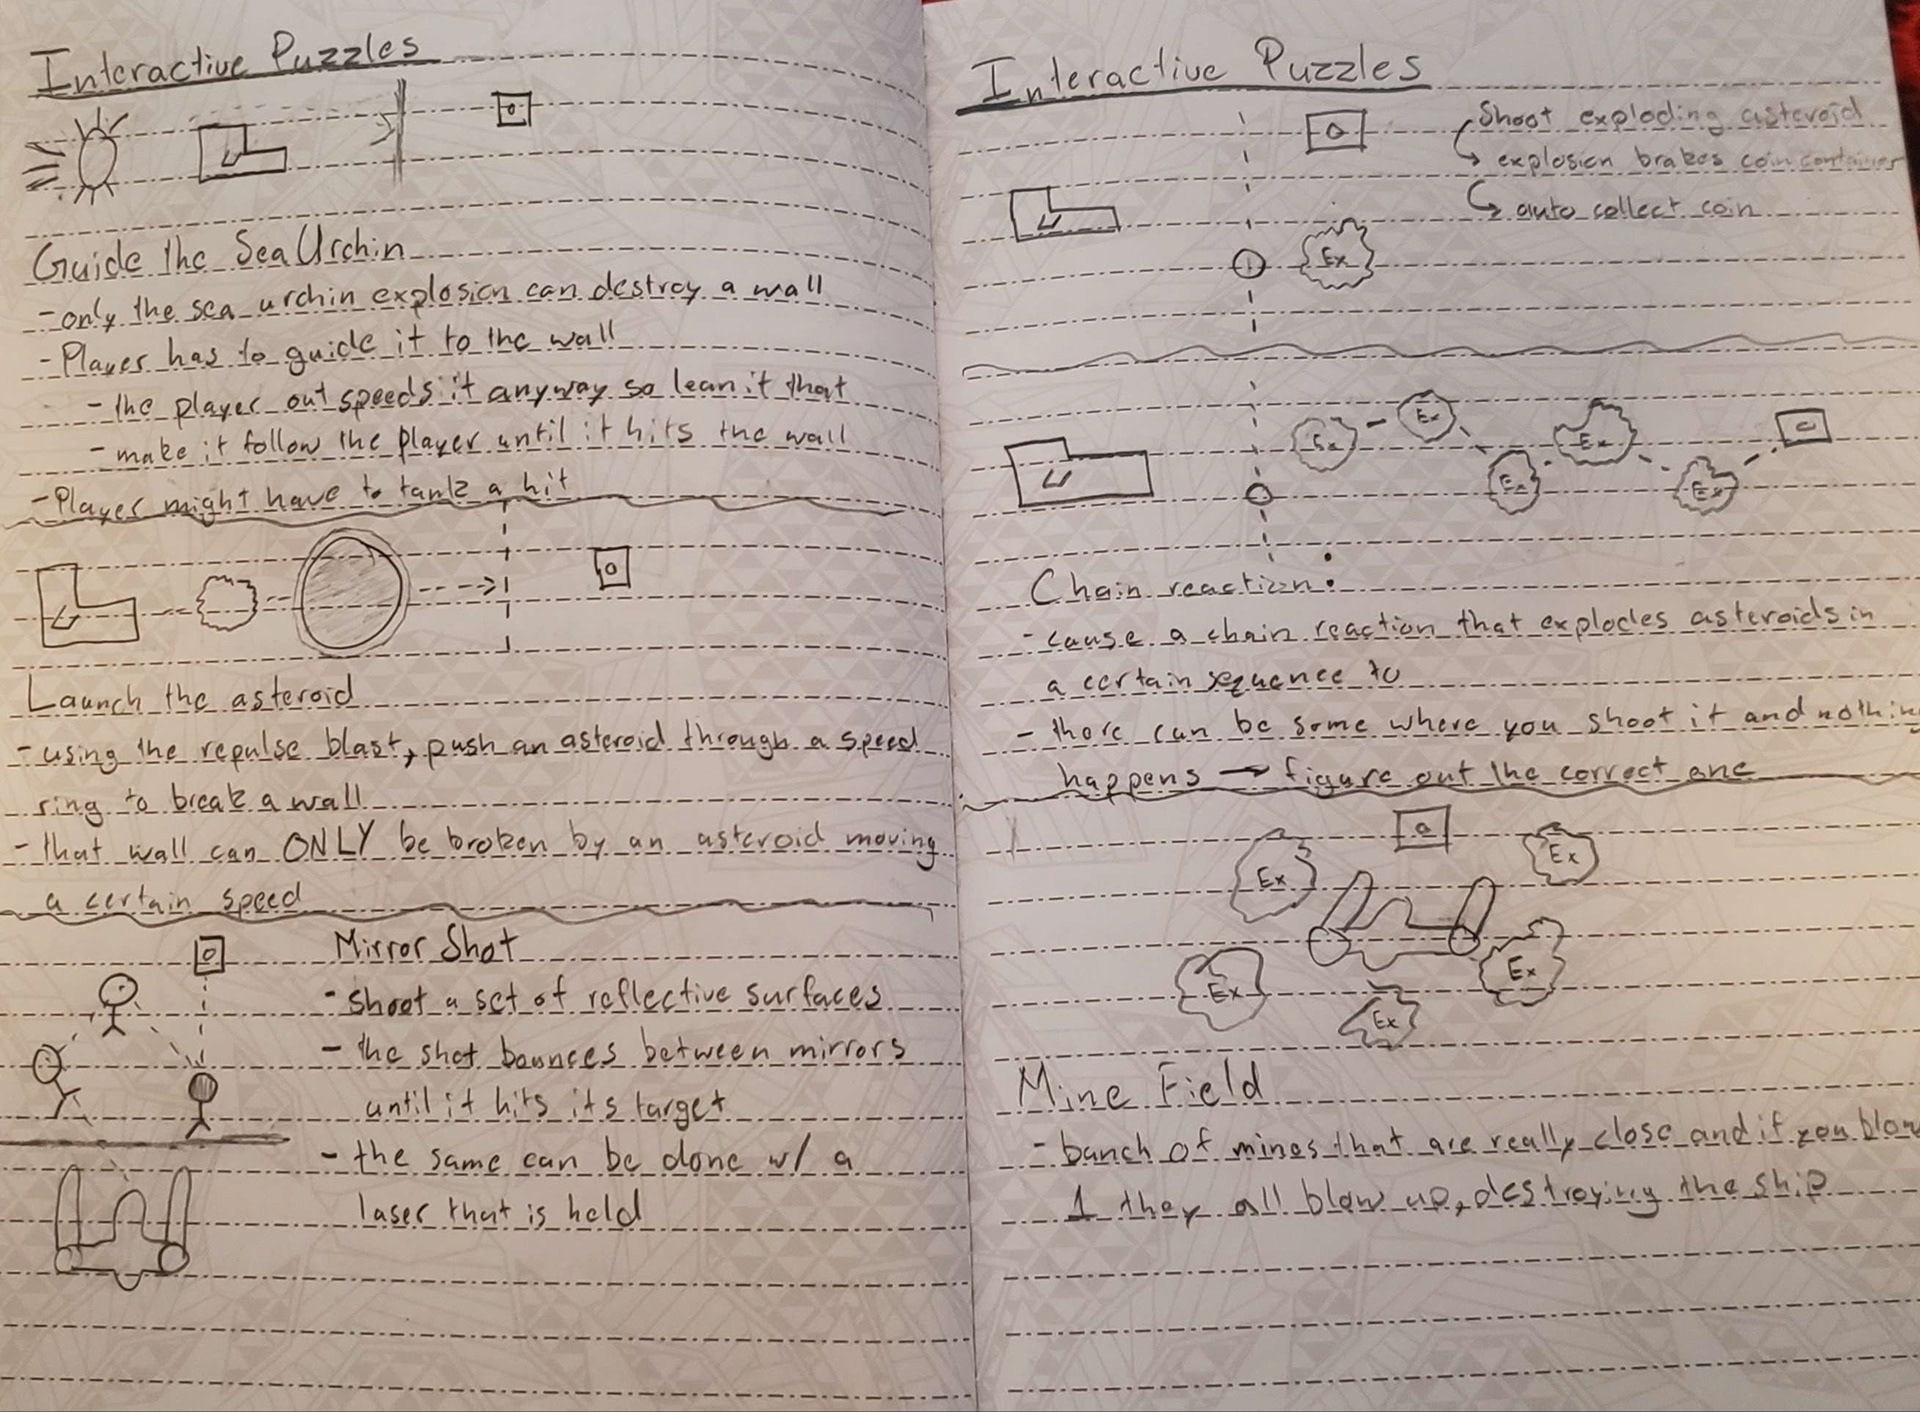 Interactive Puzzles
Guide the Sea Urchin
- only the sea urchin explosion can destroy a wall
- Player has to guide it to the wall
- the player out speeds it anyway so lean it that
- make it follow the player until it hits the wall
- Player might have to tank a hit
Launch the asteroid
- using the repulse blast, push an asteroid through a speed
ring to break a wall
- that wall can ONLY be broken by an asteroid moving
a certain speed
Mirror Shot
- shoot a set of reflective surfaces
- the shot bounces between mirrors
until it hits its target
- the same can be done w/ a
laser that is held
Interactive Puzzles
Shoot exploding asteroid
explosion brakes coin container
auto collect coin
Ex
Ex
Ex
Ex
Ex
Ex
Chain reaction:
- cause a chain reaction that explodes asteroids in
a certain sequence to
- there can be some where you shoot it and nothing
happens → figure out the correct one
Ex
Ex
Ex
Ex
Ex
Mine Field
- bunch of mines that are really close and if you blow
1 they all blow up, destroying the ship